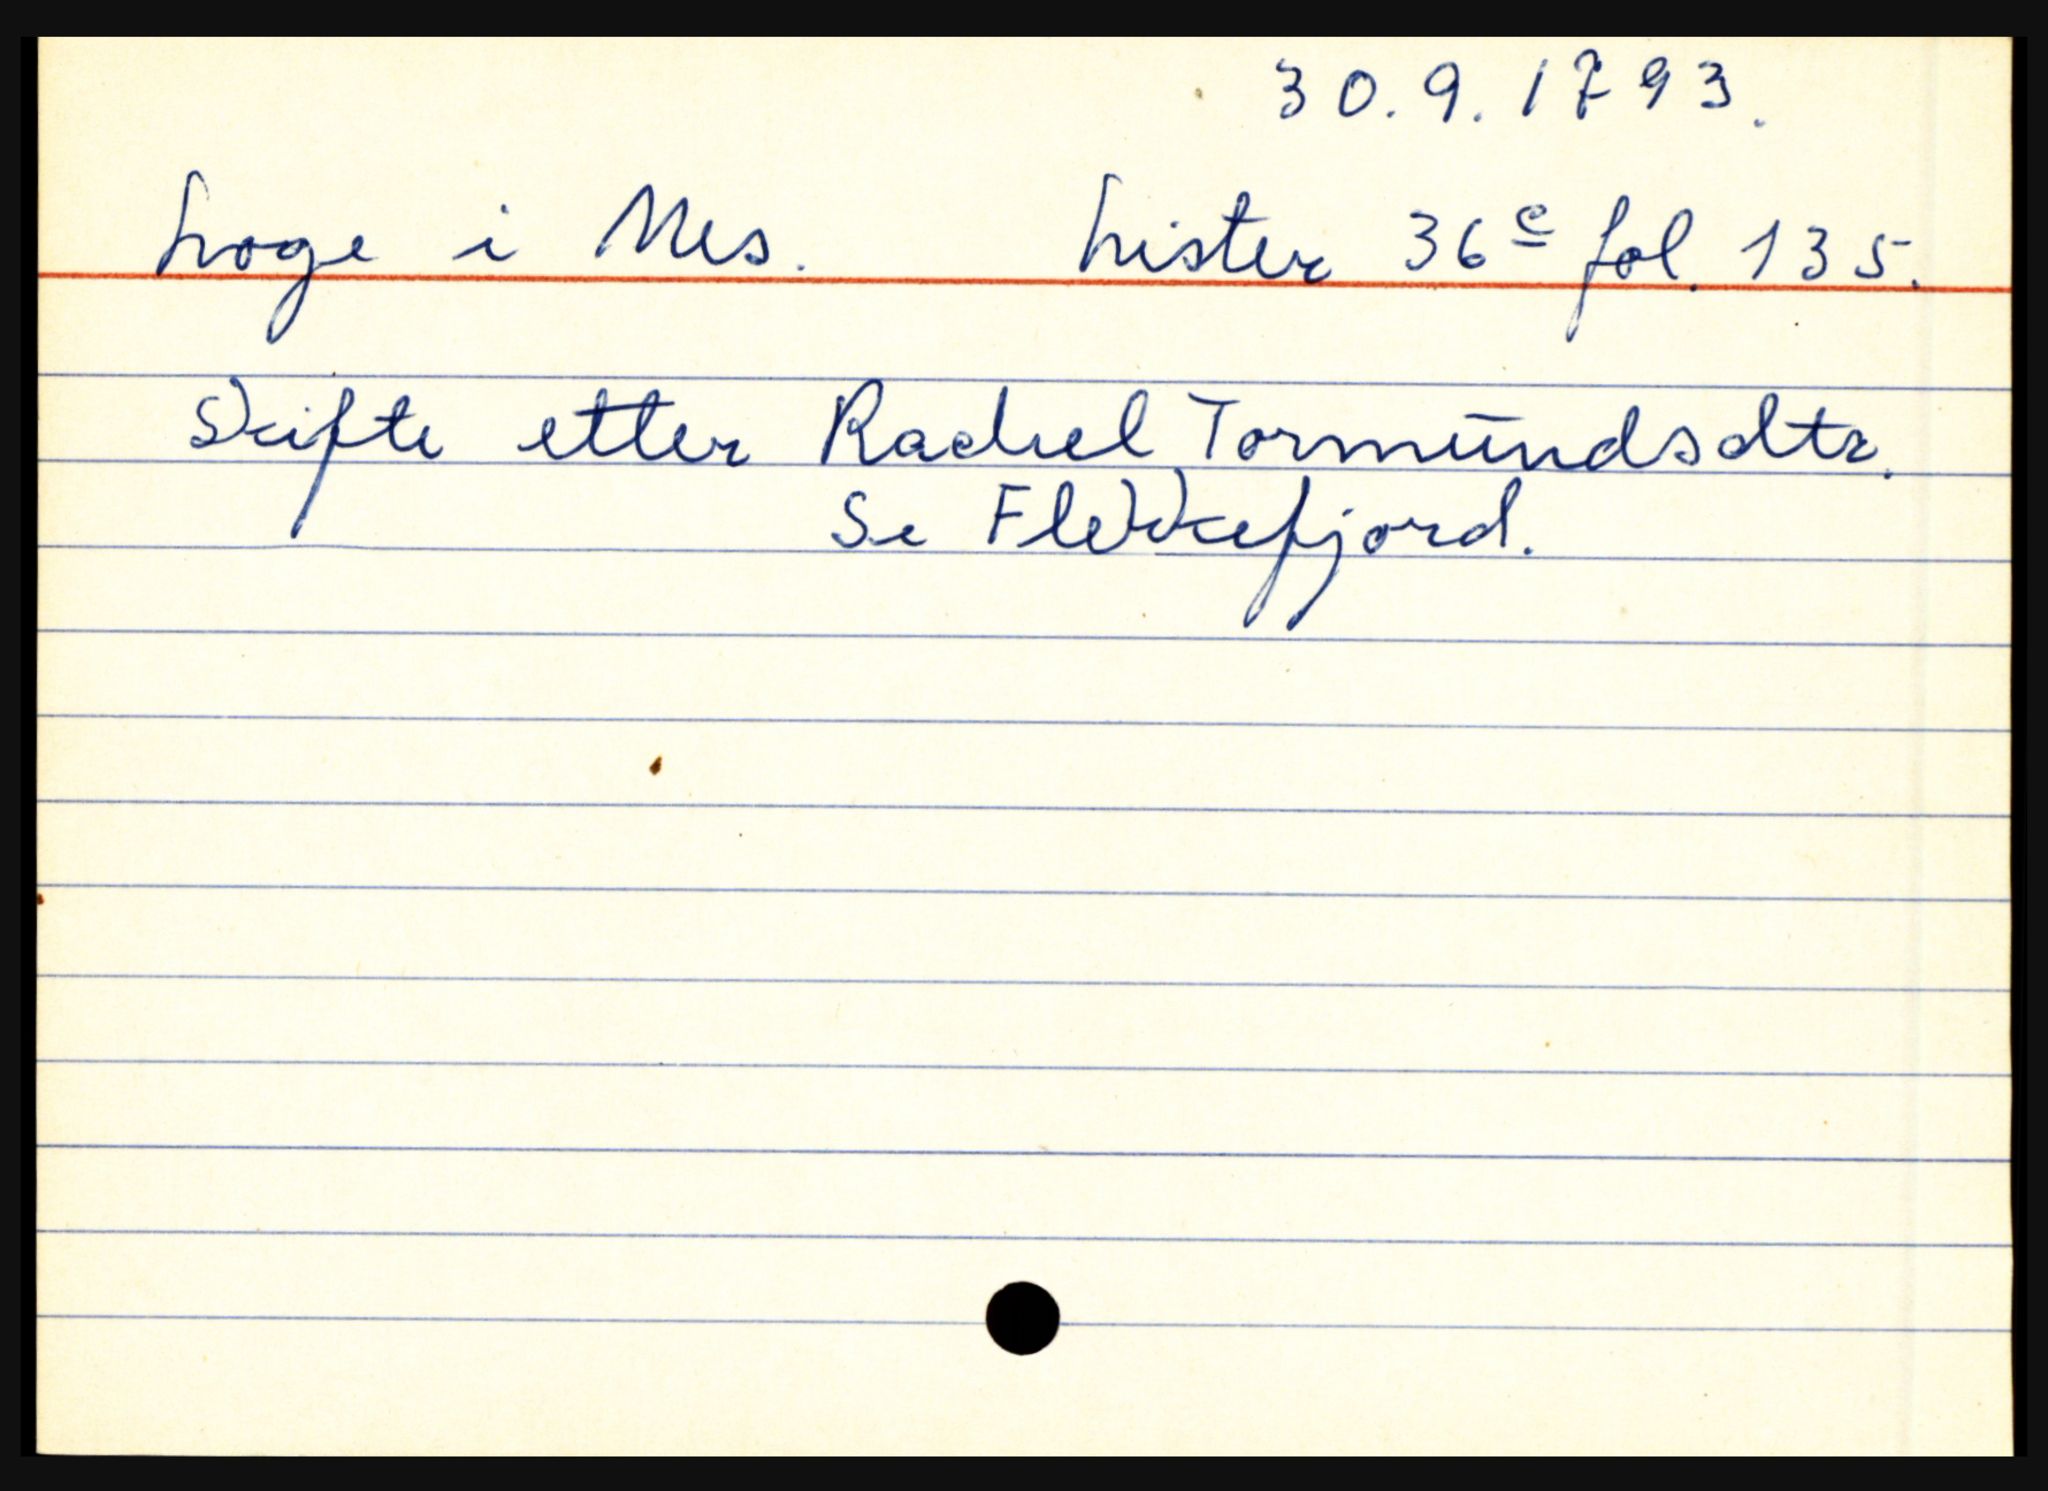 30.9.1793.
Loge i Nes. Lister 36c fol. 135.
Skifte etter Rachel Tormundsdtr.
Se Flekkefjord.